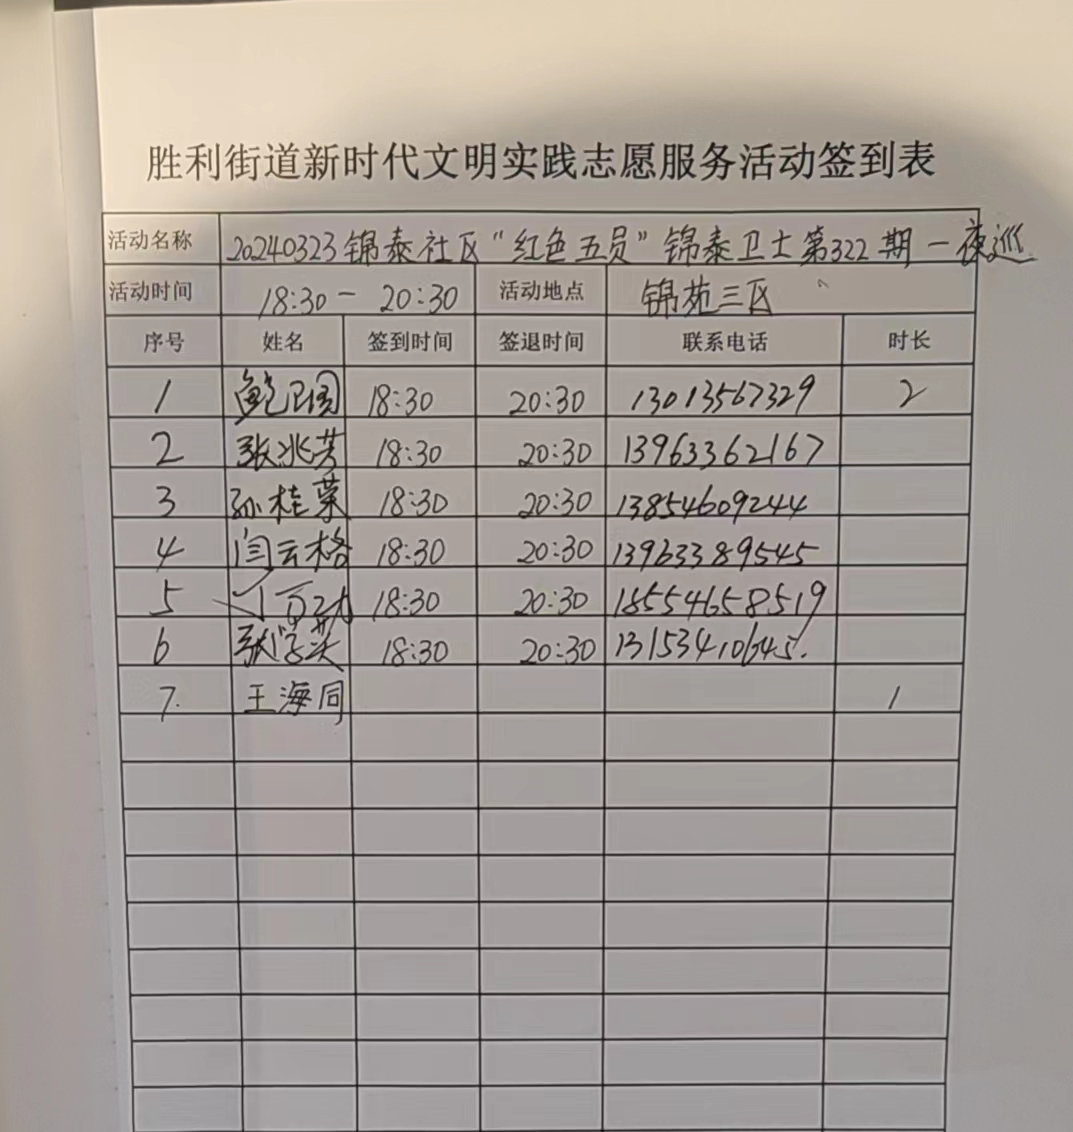 胜利街道新时代文明实践志愿服务活动签到表
活动名称 20240323锦泰社区“红色五员”锦泰卫士第322期一夜巡
活动时间 18:30 - 20:30 活动地点 锦苑三区
序号 姓名 签到时间 签退时间 联系电话 时长
1 鲍卫国 18:30 20:30 13013567329 2
2 张兆芳 18:30 20:30 13963362167
3 孙桂荣 18:30 20:30 13854609244
4 闫云格 18:30 20:30 13963389545
5 丁 18:30 20:30 18554658519
6 张学英 18:30 20:30
7. 王海同 1